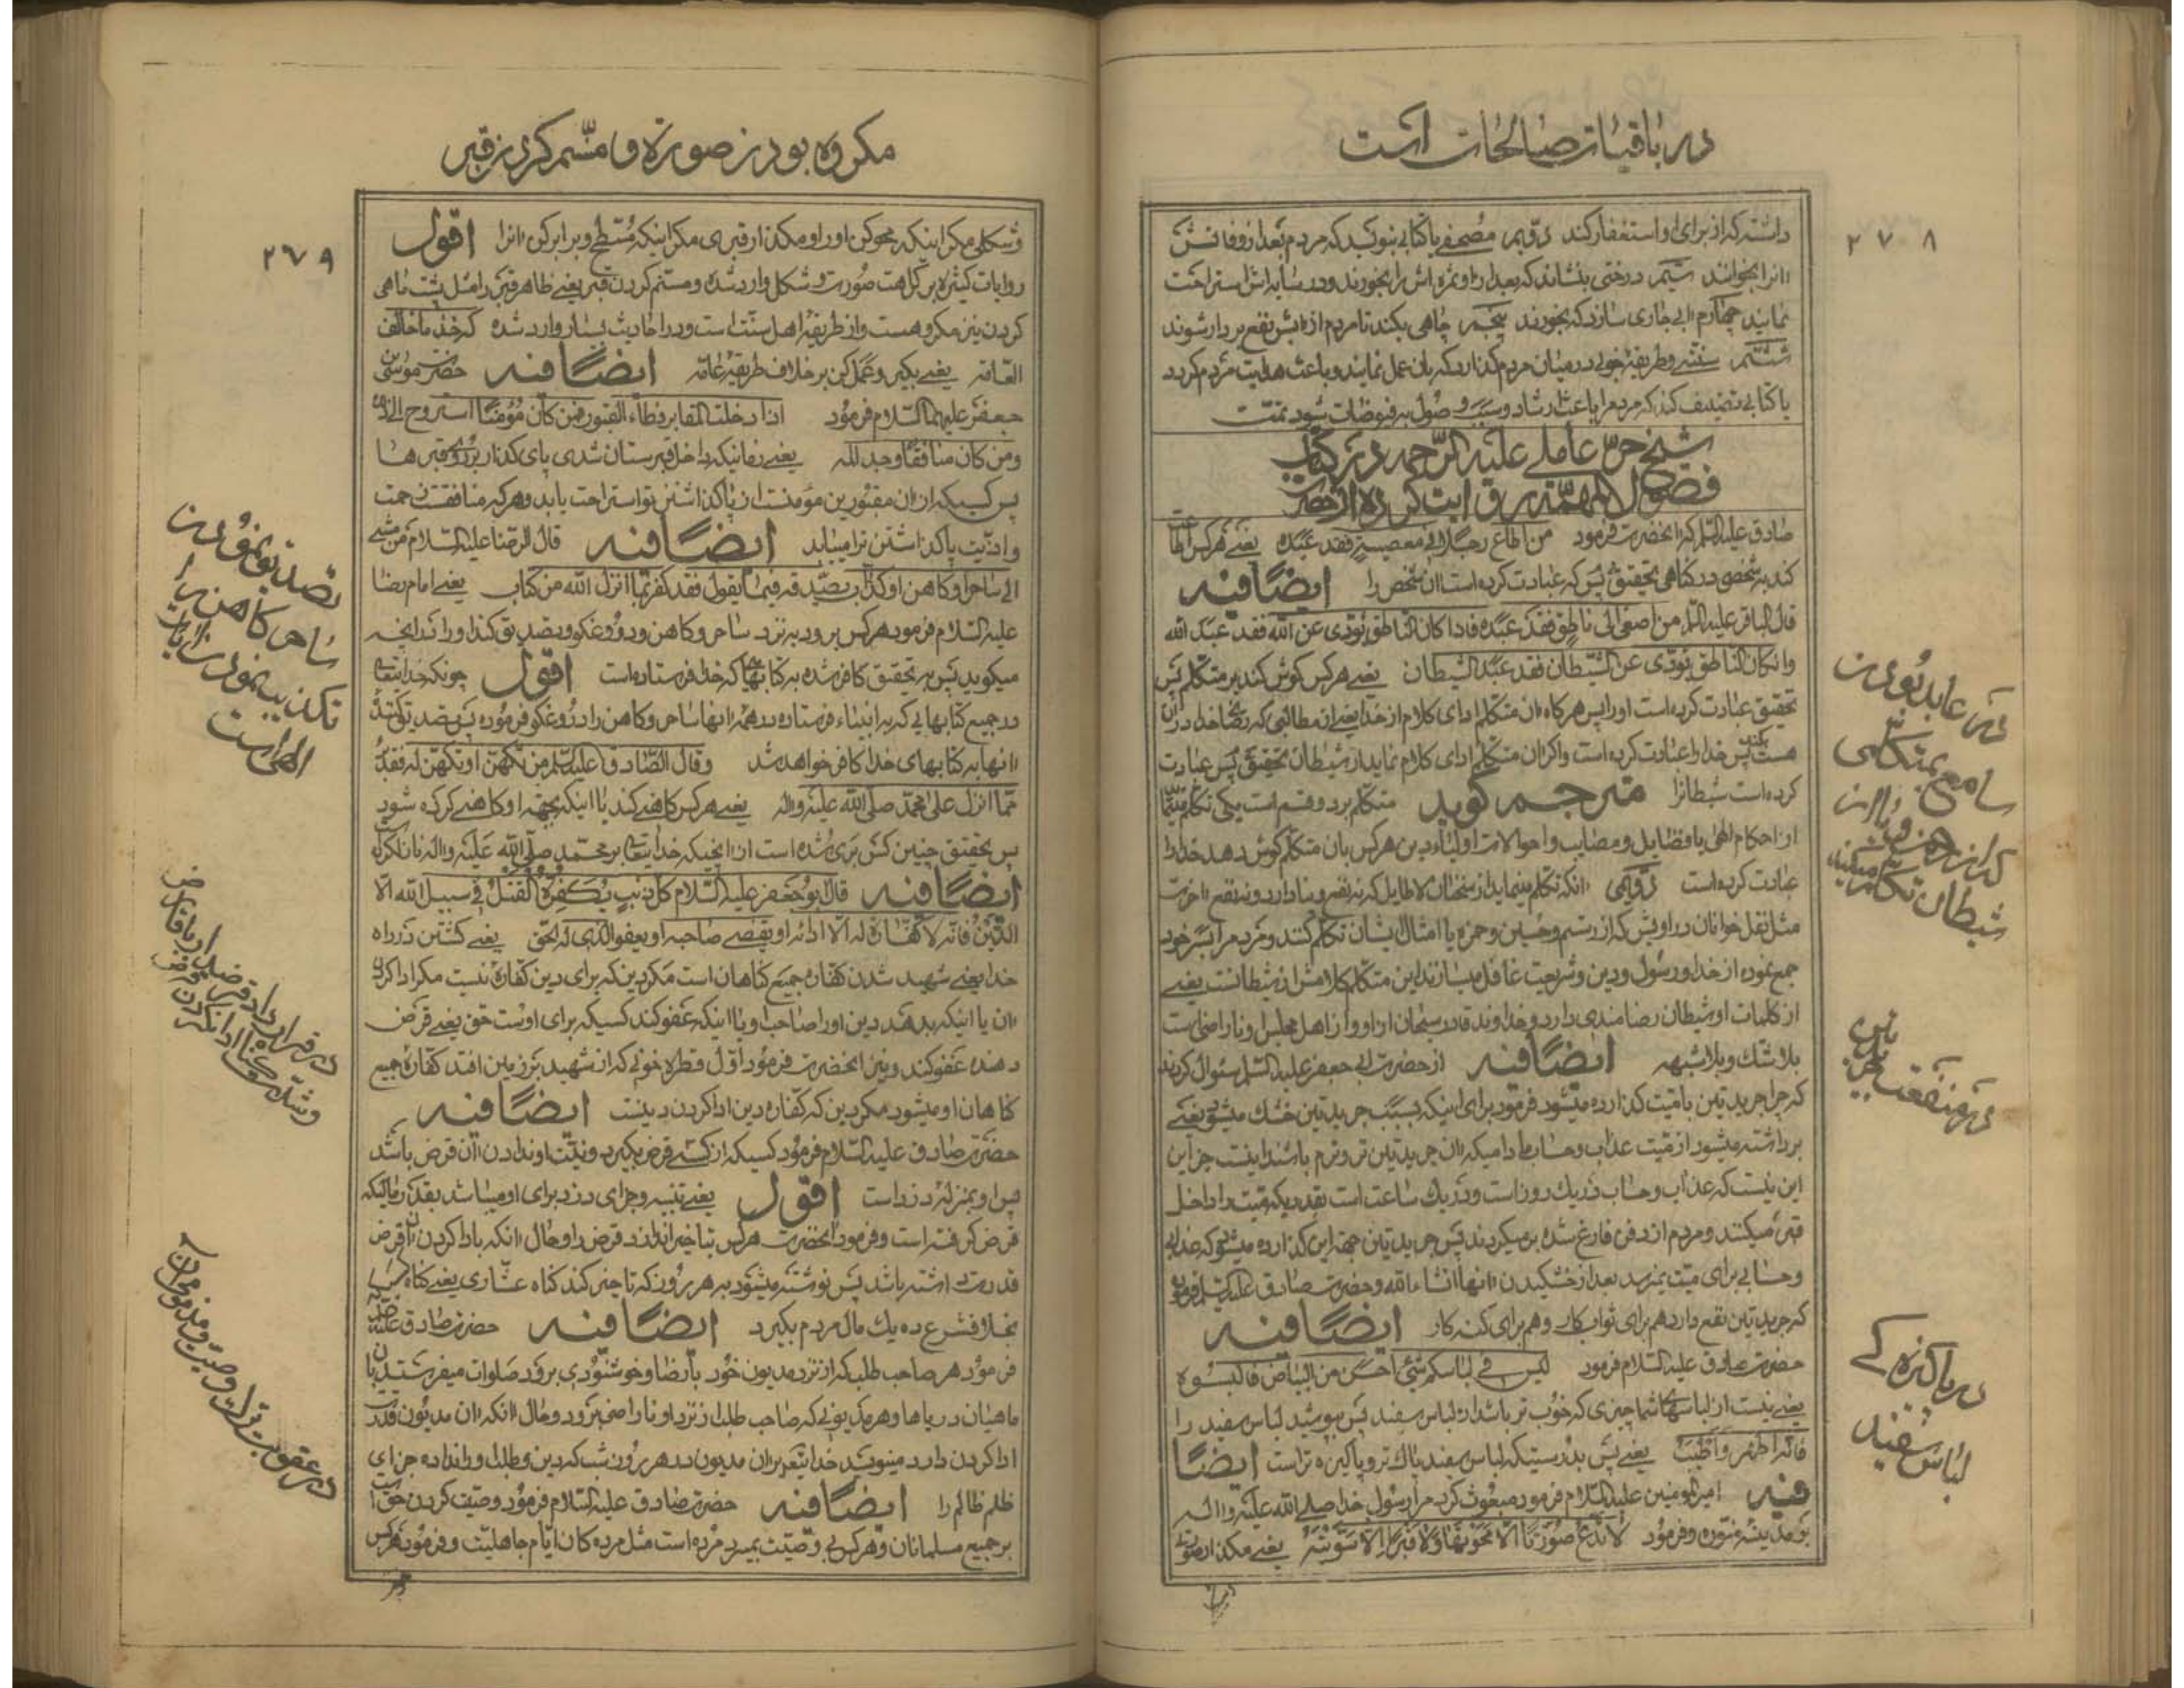 در باقیات صالحات است
۲۷۸
داشته که از برای او استغفار کند دویم مصحفی یا کتابی بنویسد که مردم بعد از وفاتش
انرا بخوانند سیم درختی بنشاند که بعد از او ثمره اش را بخورند و در سایه اش استراحت
نمایند چهارم ابی جاری سازد که بخورند پنجم چاهی بکند تا مردم از ابش نفع بردار شوند
ششم سنتی و طریقه خوبی در میان مردم گذارد که بان عمل نمایند و باعث هدایت مردم گردد
یا کتابی تصنیف کند که مردم را باعث ارشاد و سبب وصول به فیوضات شود تمت
شیخ حر عاملی علیه الرحمه در کتاب
فصول المهمه روایت کرده از حضرت
صادق علیه السلم که انحضرت فرمود من اطاع رجلا فی معصیة فقد عبده یعنی هر کس اطاعت
کند به شخصی در گناهی بتحقیق پس که عبادت کرده است ان شخص را ایضا فیه
قال الباقر علیه السلم من اصغی الی ناطق فقد عبده فاذا کان الناطق یؤدی عن الله فقد عبد الله
وان کان الناطق یؤدی عن الشیطان فقد عبد الشیطان یعنی هر کس گوش کند بر متکلم پس
تحقیق عبادت کرده است او را پس هر گاه ان متکلم ادای کلام از خدا یعنی از مطالبی که رضا خدا در ان
هست بکند پس خدا را عبادت کرده است و اگر ان متکلم ادای کلام نماید از شیطان بتحقیق پس عبادت
کرده است شیطانرا مترجم گوید متکلم بر دو قسم است یکی تکلم مینماید
از احکام الهی یا فضایل و مصایب و احوالات اولیاء دین هر کس بان متکلم گوش دهد خدا را
عبادت کرده است دویمی انکه تکلم مینماید از سخنان لاطایل که نه نفع دنیا دارد و نه نفع اخرت
مثل نقل خوانان دراویش که از رستم و حسین و حمزه یا امثال ایشان تکلم کنند و مردم را بسر خود
جمع نموده از خدا و رسول و دین و شریعت غافل میسازند این متکلم کلامش از شیطانست یعنی
از کلمات او شیطان رضامندی دارد و خداوند قادر سبحان از او و از اهل مجلس او ناراضی است
بلاشک و بلاشبهه ایضا فیه از حضرت ابی جعفر علیه السلم سئوال کردند
که چرا جریدتین با میت گذارده میشود فرمود برای اینکه بسبب جریدتین خشک میشود یعنی
برداشته میشود از میت عذاب و حساب مادامیکه ان جریدتین تر و نرم باشد نیست جز این
این نیست که عذاب و حساب در یک روز است و در یک ساعت است بقدریکه میت را داخل
قبر میکنند و مردم از دفن فارغ شده برمیگردند پس جریدتین جهة این گذارده میشود که عذابی
و حسابی برای میت نمیرسد بعد از خشکیدن انها انشاء الله و حضرت صادق علیه السلم فرمود
که جریدتین نفع دارد هم برای ثواب کار و هم برای گنه کار ایضا فیه
حضرت صادق علیه السلام فرمود لیس فی لباسکم شیئ احسن من البیاض فالبسوه
یعنی نیست از لباسهای شما چیزی که خوب تر باشد از لباس سفید پس بپوشید لباس سفید را
فانه اطهر و اطیب یعنی پس بدرستیکه لباس سفید پاک تر و پاکیزه تر است ایضا
فیه امیر المومنین علیه السلام فرمود مبعوث کرد مرا رسول خدا صلی الله علیه و اله
به مدینه منوره و فرمود لا تدع صورتا الا محوتها ولا قبرا الا سویته یعنی مگذار صورتی
در عابد بودن
سامع بمتکلمی
که از رحمن و یا از
شیطان تکلم میکند
در منفعت جریدتین
در پاکیزه گی
لباس سفید
مکروه بودن صورة و مسنم کردن قبر
۲۷۹
و شکلی مگر اینکه محو کن او را و مگذار قبری مگر اینکه مسطح و برابر کن انرا اقول
روایات کثیره بر کراهت صورت و شکل وارد شده و مسنم کردن قبر یعنی ظاهر قبر را مثل پشت ماهی
کردن نیز مکروهست و از طریقه اهل سنت است و در احادیث بسیار وارد شده که خذ ما خالف
العامة یعنی بگیر و عمل کن بر خلاف طریقه عامه ایضا فیه حضرت موسی بن
جعفر علیهما السلام فرمود اذا دخلت المقابر فطاء القبور فمن کان مؤمنا استروح الی ذلک
ومن کان منافقا وجد المه یعنی زمانیکه داخل قبرستان شدی پای گذار بر روی قبرها
پس کسیکه از ان مقبورین مؤمنست از پا گذاشتن تو استراحت یابد و هر که منافقست زحمت
و اذیت پا گذاشتن ترا مییابد ایضا فیه قال الرضا علیه السلام من مشی
الی ساحر او کاهن او کذاب یصدقه فیما یقول فقد کفر بما انزل الله من کتاب یعنی امام رضا
علیه السلام فرمود هر کس برود به نزد ساحر و کاهن و دروغگو و تصدیق کند او را در انچه
میگوید پس به تحقیق کافر شده به کتابهائی که خدا فرستاده است اقول چونکه خدایتعالی
در جمیع کتابهایی که به انبیاء فرستاده در همه انها ساحر و کاهن را دروغگو فرموده پس تصدیق کننده
انها به کتابهای خدا کافر خواهد شد وقال الصادق علیه السلم من تکهن او تکهن له فقد برئ
مما انزل علی محمد صلی الله علیه و اله یعنی هر کس کاهنی کند یا اینکه بجهة او کاهنی کرده شود
پس بتحقیق چنین کس بری شده است از انچیکه خدایتعالی بر محمد صلی الله علیه و اله نازل کرده است
ایضا فیه قال ابو جعفر علیه السلام کل ذنب یکفره القتل فی سبیل الله الا
الدین فانه لا کفارة له الا ادائه او یقضی صاحبه او یعفو الذی له الحق یعنی کشتن در راه
خدا یعنی شهید شدن کفاره جمیع گناهان است مگر دین که برای دین کفاره نیست مگر ادا کردن
ان یا اینکه بدهد دین او را صاحب او یا اینکه عفو کند کسیکه برای اوست حق یعنی قرض
دهنده عفو کند و نیز انحضرت فرمود اول قطره خونی که از شهید بر زمین افتد کفاره جمیع
گناهان او میشود مگر دین که کفاره دین ادا کردن دینست ایضا فیه
حضرت صادق علیه السلام فرمود کسیکه از کسی قرض بگیرد و نیت او ندادن ان قرض باشد
پس او بمنزله دزد است اقول یعنی تنبیه و جزای دزد برای او میباشد بقدر مالیکه
قرض گرفته است و فرمود انحضرت هر کس بتاخیر اندازد قرض را و حال انکه به ادا کردن ان قرض
قدرت داشته باشد پس نوشته میشود به هر روز که تاخیر کند گناه عشاری یعنی گناه کسیکه
بخلاف شرع ده یک مال مردم بگیرد ایضا فیه حضرت صادق علیه السلم
فرمود هر صاحب طلب که از نزد مدیون خود با رضا و خوشنودی برود صلوات میفرستند بان
ماهیان دریاها و هر مدیونی که صاحب طلب از نزد او ناراضی برود و حال انکه ان مدیون قدرت
ادا کردن دارد مینویسد خدایتعالی بر ان مدیون در هر روز و شب که دین و طلب او را نداده جزای
ظلم ظالم را ایضا فیه حضرت صادق علیه السلام فرمود وصیت کردن حق است
بر جمیع مسلمانان و هر کس بی وصیت بمیرد مرده است مثل مرده گان ایام جاهلیت و فرمود هر کس
تصدیق نمودن
ساحر کاهن را
تکذیب نمودن ایات
الهی است